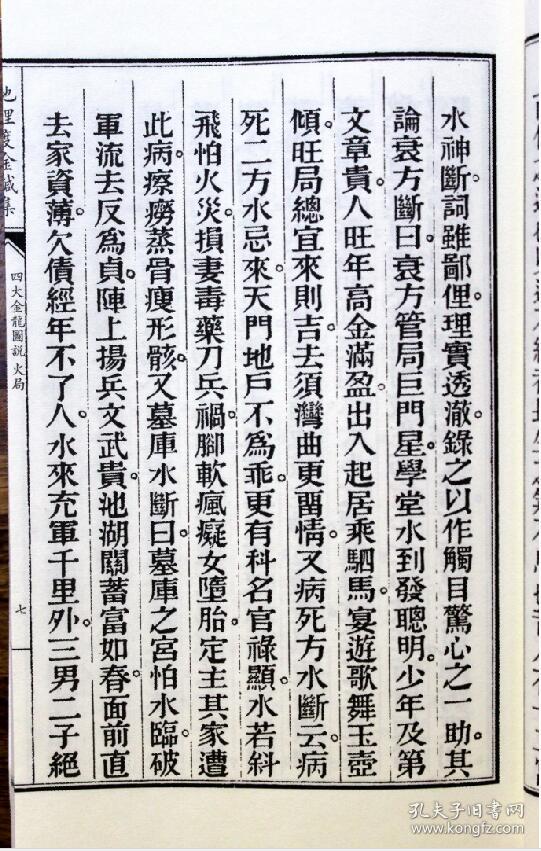 水神斷詞雖鄙俚。理實透澈。錄之以作觸目驚心之一助。其
論衰方斷曰。衰方管局巨門星。學堂水到發聰明。少年及第
文章貴。人旺年高金滿盈。出入起居乘駟馬。宴遊歌舞玉壺
傾。旺局總宜來則吉。去須灣曲更畱情。又病死方水斷云。病
死二方水忌來。天門地戶不爲乖。更有科名官祿顯。水若斜
飛怕火災。損妻毒藥刀兵禍。腳軟瘋癡女墮胎。定主其家遭
此病。瘵癆蒸骨瘦形骸。又墓庫水斷曰。墓庫之宮怕水臨。破
軍流去反爲貞。陣上揚兵文武貴。池湖闊蓄富如春。面前直
去家資薄。欠債經年不了人。水來充軍千里外。三男二子絕
地理 金 集
四大金龍圖說 火局
七
孔夫子旧书网
www.kongfz.com